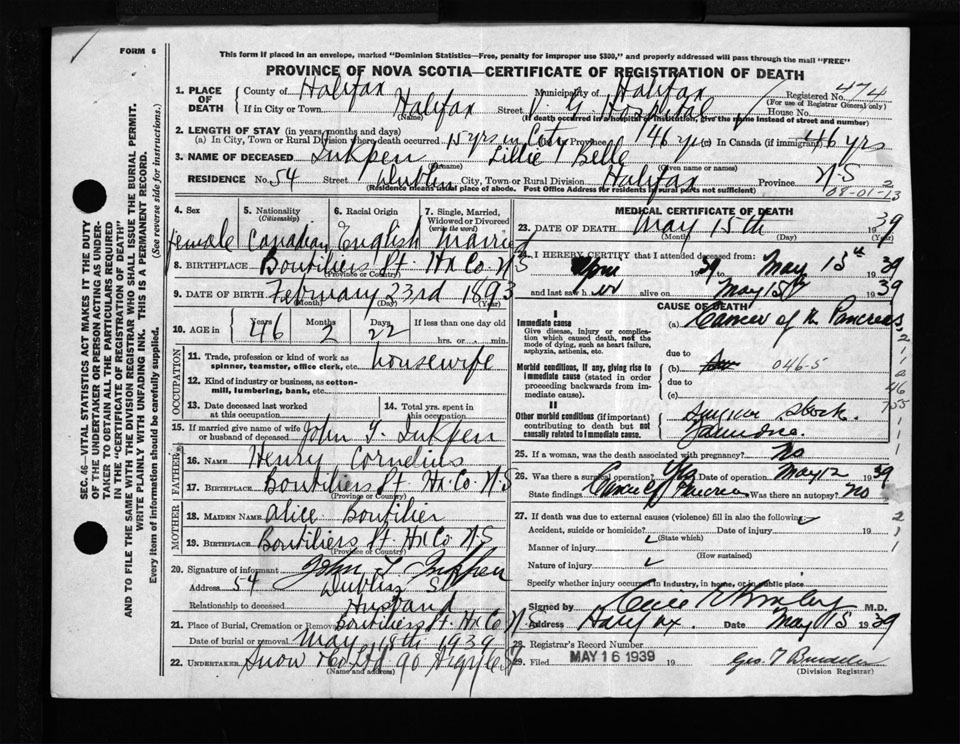 FORM 6
This form if placed in an envelope, marked "Dominion Statistics—Free, penalty for improper use $300," and properly addressed will pass through the mail "FREE"
PROVINCE OF NOVA SCOTIA—CERTIFICATE OF REGISTRATION OF DEATH
SEC. 46—VITAL STATISTICS ACT MAKES IT THE DUTY
OF THE UNDERTAKER OR PERSON ACTING AS UNDER-
TAKER TO OBTAIN ALL THE PARTICULARS REQUIRED
IN THE "CERTIFICATE OF REGISTRATION OF DEATH"
AND TO FILE THE SAME WITH THE DIVISION REGISTRAR WHO SHALL ISSUE THE BURIAL PERMIT.
WRITE PLAINLY WITH UNFADING INK. THIS IS A PERMANENT RECORD.
Every item of information should be carefully supplied. (See reverse side for instructions.)
1. PLACE OF DEATH County of Halifax Municipality of Halifax Registered No. 474
(For use of Registrar General only)
If in City or Town Halifax Street V. G. Hospital House No.
(Name) (If death occurred in a hospital or institution, give the name instead of street and number)
2. LENGTH OF STAY (in years, months and days)
(a) In City, Town or Rural Division where death occurred 15 yrs in City Province 46 yrs (c) In Canada (if immigrant) 46 yrs
3. NAME OF DECEASED Inkpen Lillie Belle
(Name) (Given name or names)
RESIDENCE No. 54 Street Dublin City, Town or Rural Division Halifax Province N.S
(Residence means usual place of abode. Post Office Address for residents in rural parts not sufficient)
2
08-01-13
4. Sex 5. Nationality (Citizenship) 6. Racial Origin 7. Single, Married, Widowed or Divorced (write the word)
Female Canadian English Married
8. BIRTHPLACE Boutiliers Pt. Hx Co. N S
(Province or County)
9. DATE OF BIRTH February 23rd 1893
(Day) (Year)
10. AGE in Years Months Days If less than one day old
46 2 22 hrs. or min.
OCCUPATION
11. Trade, profession or kind of work as spinner, teamster, office clerk, etc. housewife
12. Kind of industry or business, as cotton-mill, lumbering, bank, etc.
13. Date deceased last worked at this occupation
14. Total yrs. spent in this occupation.
15. If married give name of wife or husband of deceased John T. Inkpen
FATHER
16. Name Henry Cornelius
17. Birthplace Boutiliers Pt Hx. Co. N.S
(Province or County)
MOTHER
18. Maiden Name Alice Boutilier
19. Birthplace Boutiliers Pt. Hx Co N.S
(Province or County)
20. Signature of informant John T Inkpen
Address 54 Dublin St
Relationship to deceased Husband
21. Place of Burial, Cremation or Removal Boutiliers Pt. Hx Co N.S
Date of burial or removal May 18th 1939
22. UNDERTAKER Snow & Co Ltd 90 Argyle St
(Name and Address)
MEDICAL CERTIFICATE OF DEATH
23. DATE OF DEATH May 15th 1939
(Month) (Day) (Year)
24. I HEREBY CERTIFY that I attended deceased from:
1939 to May 15th 1939
and last saw her alive on May 15th 1939
CAUSE OF DEATH
I
Immediate cause
Give disease, injury or complication which caused death, not the mode of dying, such as heart failure, asphyxia, asthenia, etc.
(a) Cancer of the Pancreas
due to
(b) 046-5
Morbid conditions, if any, giving rise to immediate cause (stated in order proceeding backwards from immediate cause).
due to
(c)
II
Other morbid conditions (if important) contributing to death but not causally related to immediate cause.
Shock
Jaundice
25. If a woman, was the death associated with pregnancy? No
26. Was there a surgical operation? Yes Date May 12 1939
State findings Cancer of Pancreas Was there an autopsy? No
27. If death was due to external causes (violence) fill in also the following
Accident, suicide or homicide? Date of injury 19
(State which)
Manner of injury
(How sustained)
Nature of injury
Specify whether injury occurred in industry, in home, or in public place
Signed by M.D.
Address Halifax. Date May 15 1939
28. Registrar's Record Number
29. Filed MAY 16 1939 19
(Division Registrar)